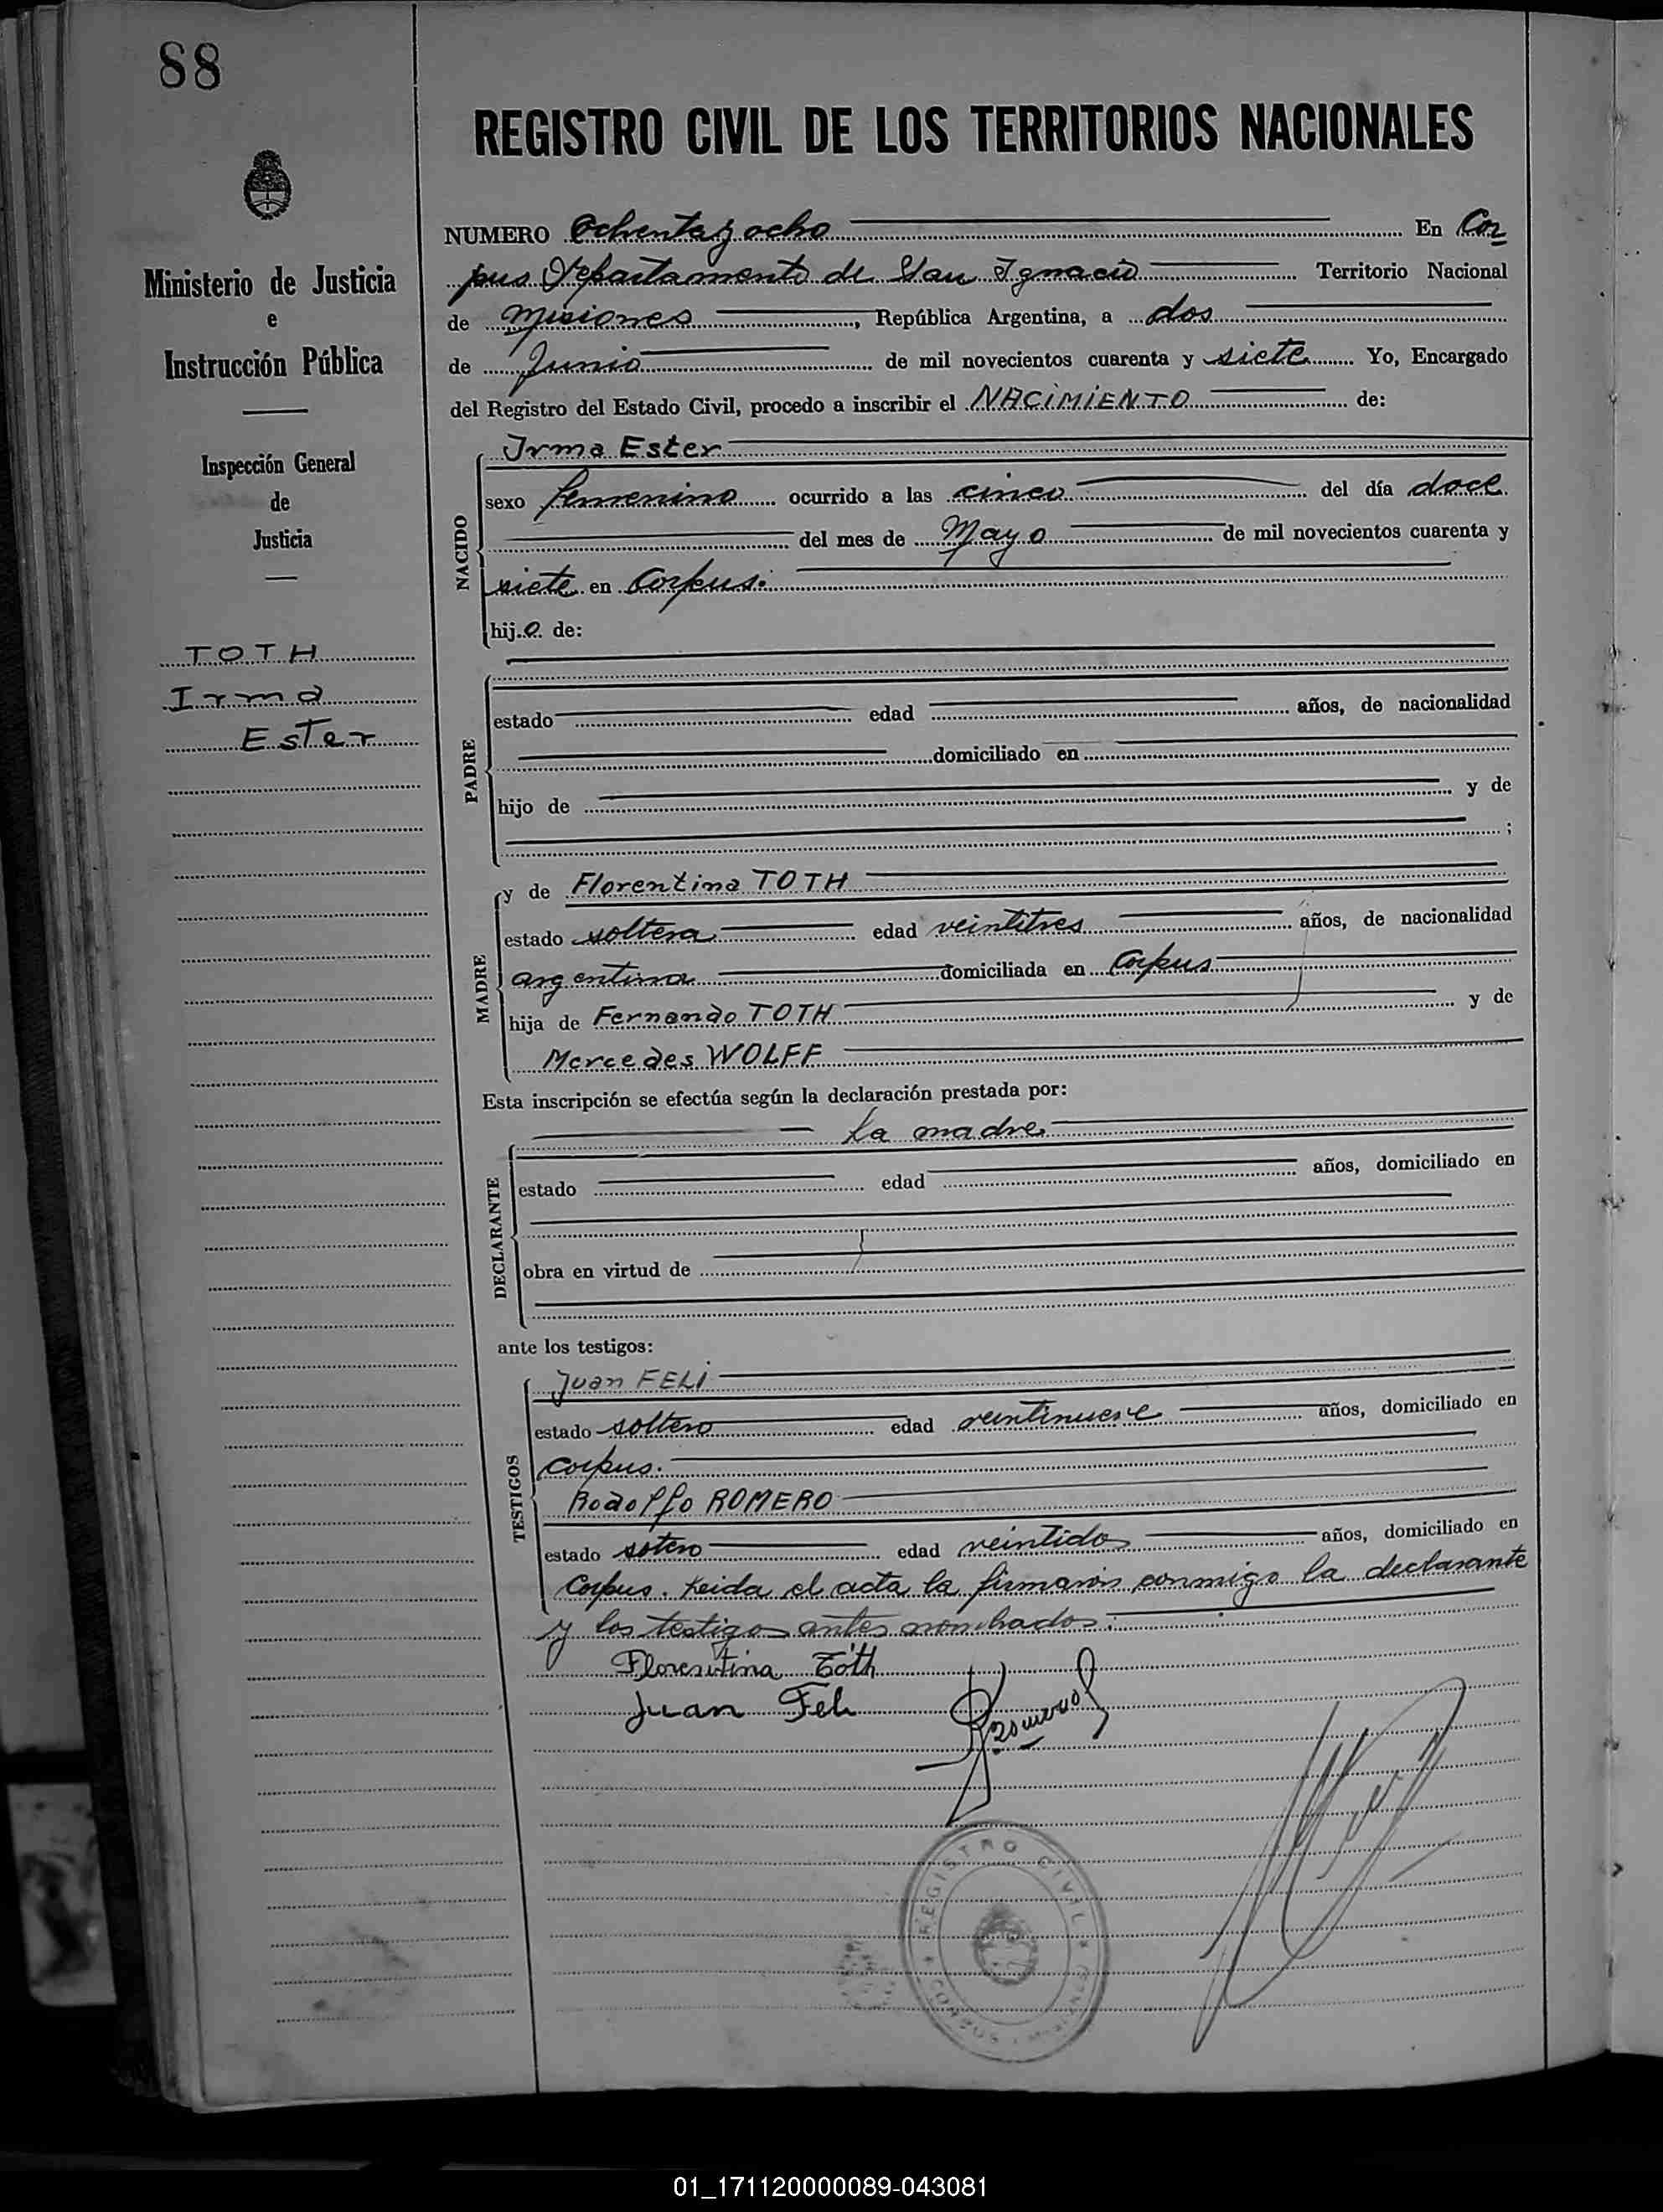 88
REGISTRO CIVIL DE LOS TERRITORIOS NACIONALES
Ministerio de Justicia
e
Instrucción Pública
Inspección General
de
Justicia
TOTH
Irma
Ester
NUMERO Ochenta y ocho En Cor
pus Departamento de San Ignacio Territorio Nacional
de Misiones, República Argentina, a dos
de Junio de mil novecientos cuarenta y siete Yo, Encargado
del Registro del Estado Civil, procedo a inscribir el NACIMIENTO de:
NACIDO
Irma Ester
sexo femenino ocurrido a las cinco del día doce
del mes de Mayo de mil novecientos cuarenta y
siete en Corpus.
hija de:
PADRE
estado edad años, de nacionalidad
domiciliado en
hijo de y de
;
MADRE
y de Florentina TOTH
estado soltera edad veintitres años, de nacionalidad
argentina domiciliada en Corpus
hija de Fernando TOTH y de
Mercedes WOLFF
Esta inscripción se efectúa según la declaración prestada por:
DECLARANTE
La madre
estado edad años, domiciliado en
obra en virtud de
ante los testigos:
TESTIGOS
Juan FELI
estado soltero edad veintinueve años, domiciliado en
Corpus.
Rodolfo ROMERO
estado sotero edad veintidos años, domiciliado en
Corpus. Leida el acta la firmaron conmigo la declarante
y los testigos antes nombrados.
Florentina Tóth
Juan Feli
Romero
REGISTRO CIVIL
CORPUS MISIONES
01_171120000089-043081